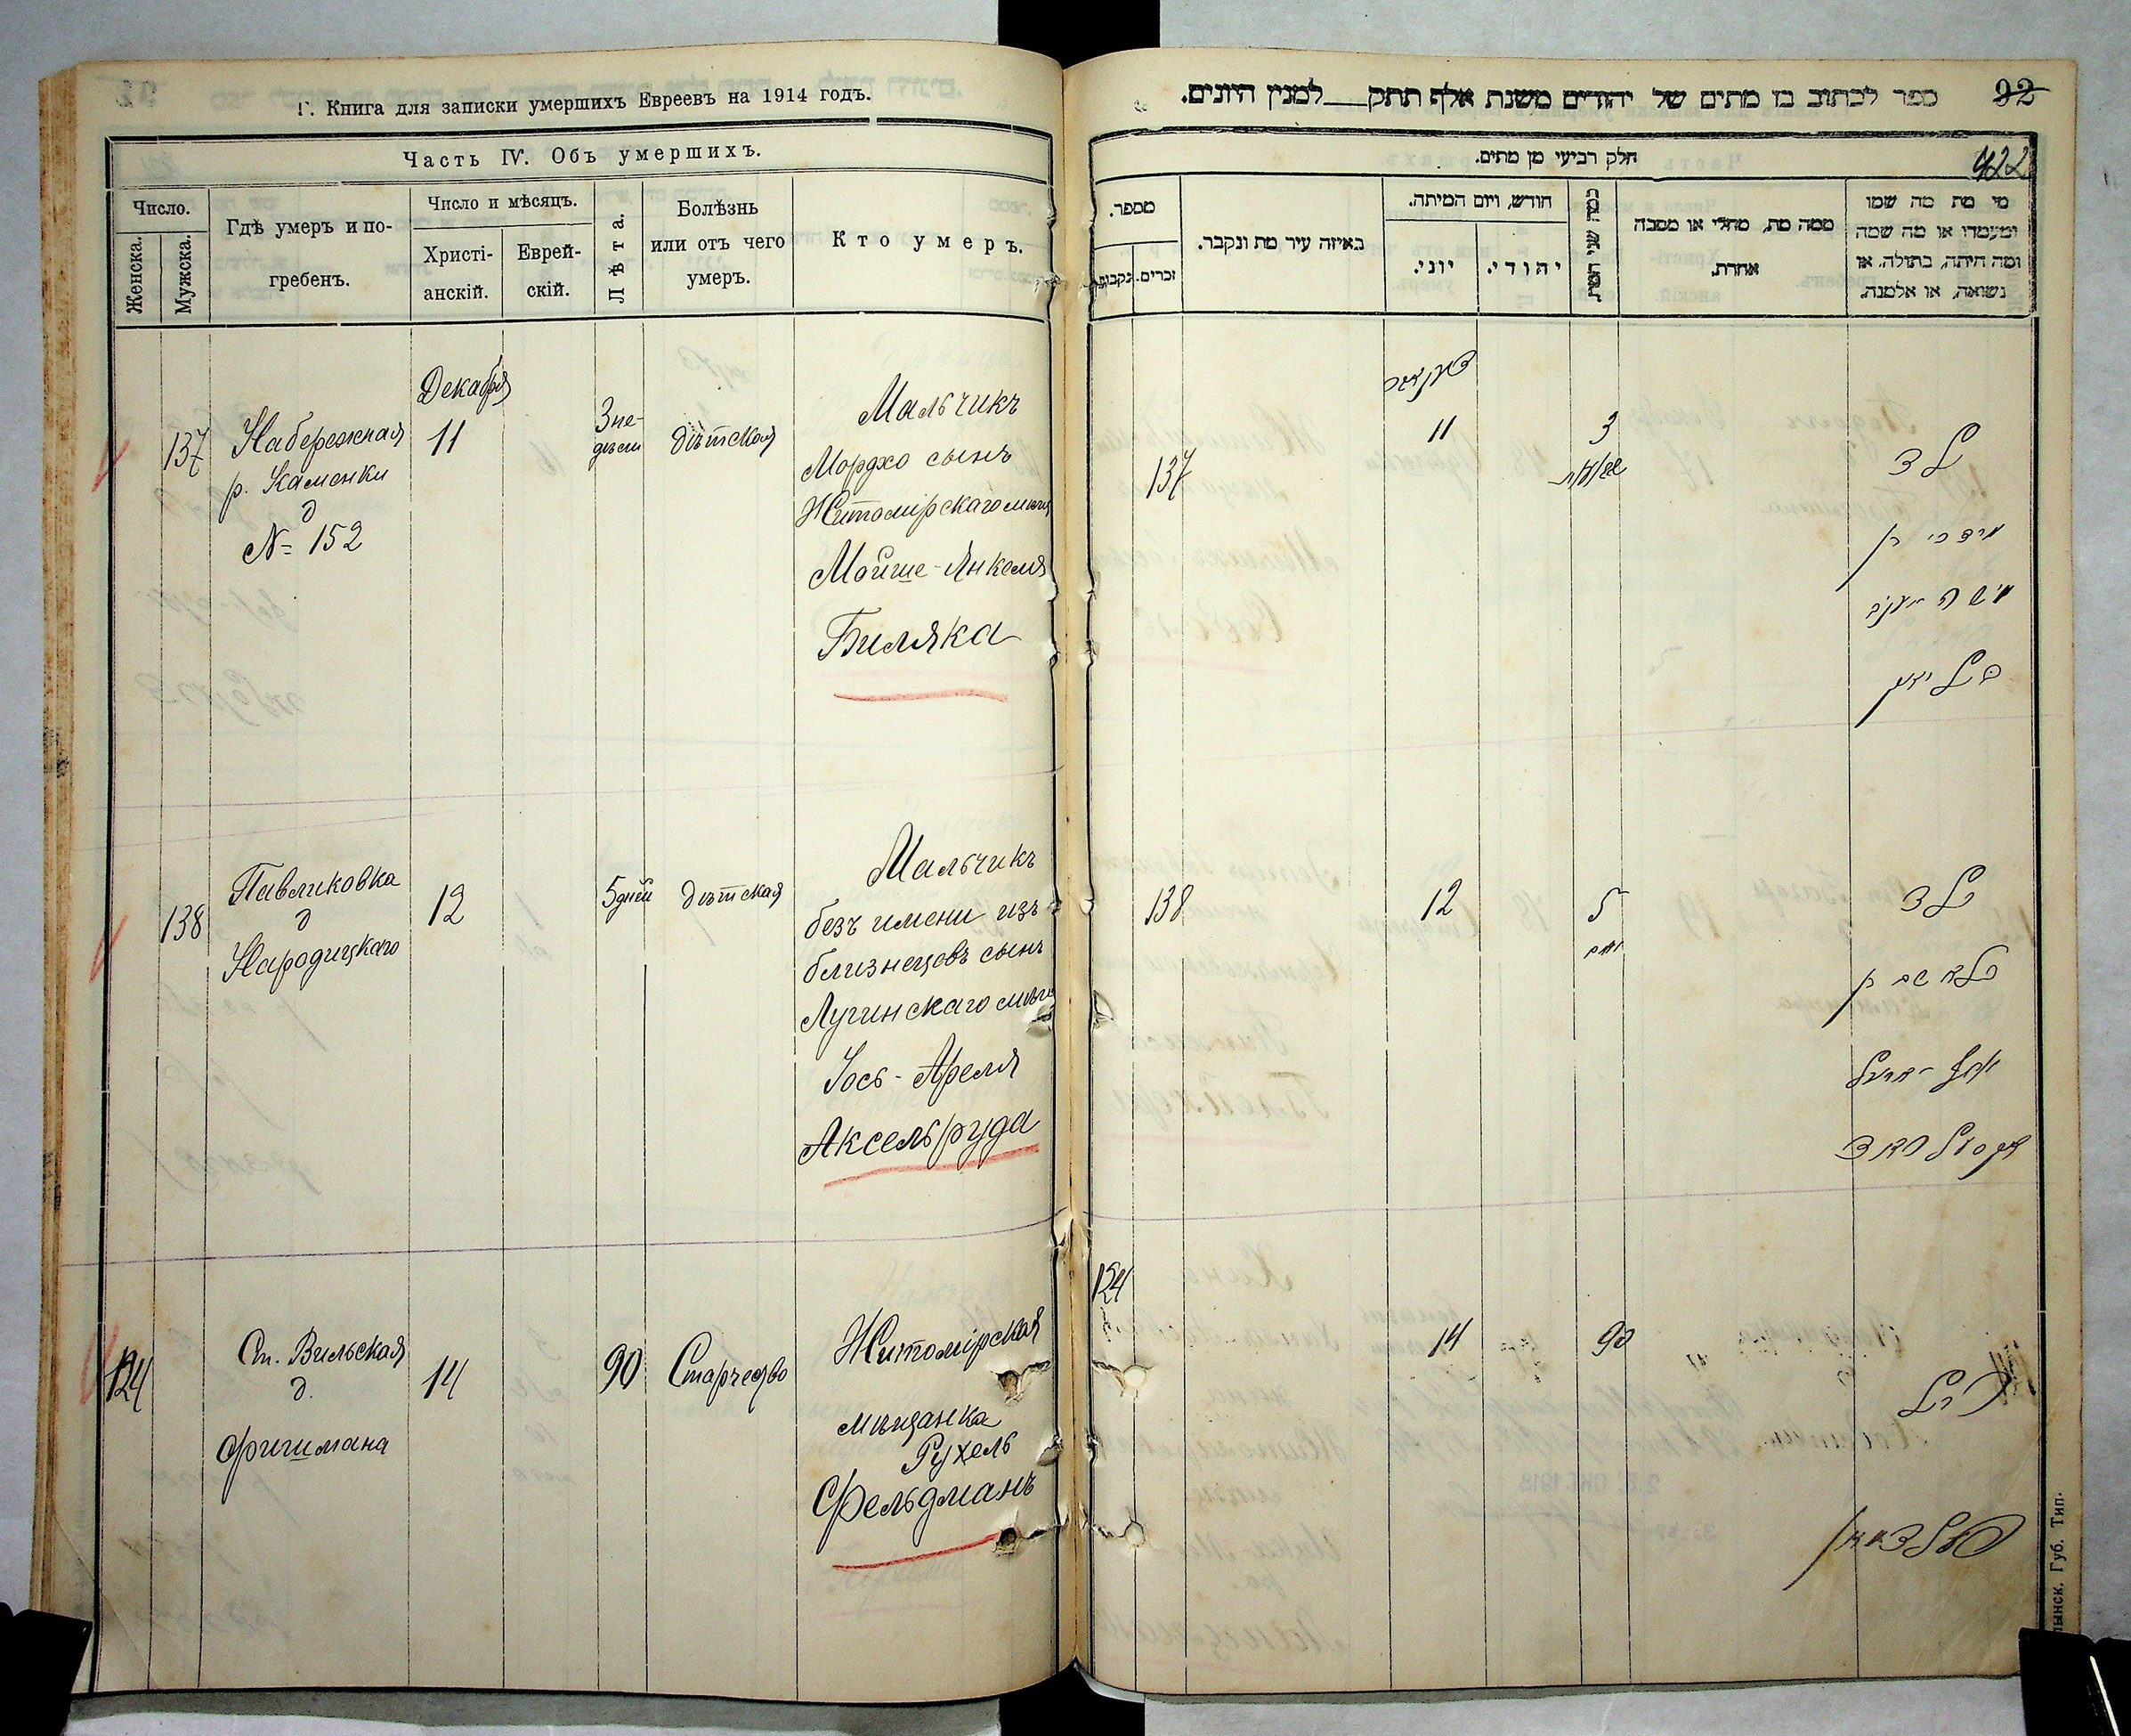 Г. Книга для записки умершихъ Евреевъ на 1914 годъ.
Часть IV. Объ умершихъ.
Число.
Женска.
Мужска.
Гдѣ умеръ и по-
гребенъ.
Число и мѣсяцъ.
Христі-
анскій.
Еврей-
скій.
Лѣта.
Болѣзнь
или отъ чего
умеръ.
Кто умеръ.
137
Набережная
р. Каменки
д
№ 152
Декабря
11
3 не-
дѣли
дѣтская
Мальчикъ
Мордхо сынъ
Житомірскаго мѣщ
Мойше-Янкеля
Биляка
138
Павликовка
д
Народицкаго
12
5 дней
дѣтская
Мальчикъ
безъ имени изъ
близнецовъ сынъ
Лугинскаго мѣщ
Іось-Ареля
Аксельруда
124
Ст. Вильская
д.
Фришмана
14
90
Старчество
Житомірская
мѣщанка
Рухель
Фельдманъ
ספר לכתוב בו מתים של יהודים משנת אלף תתק למנין היונים.
92
422
חלק רביעי מן מתים.
מספר.
נקבות.
זכרים.
באיזה עיר מת ונקבר.
חודש, ויום המיתה.
יוני.
יהודי.
כמה שני המת.
ממה מת, מחלי או מסבה
אחרת.
מי מת מה שמו
ומעמדו או מה שמה
ומה היתה, בתולה, או
נשואה, או אלמנה.
137
דעקאבר
11
3
ילד
מרדכי בן
משה יעקב
ביליאק
138
12
5
ימים
ילד
בלא שם בן
אקסעלראד
124
14
90
רחל
פעלדמאן
лынск. Губ. Тип.